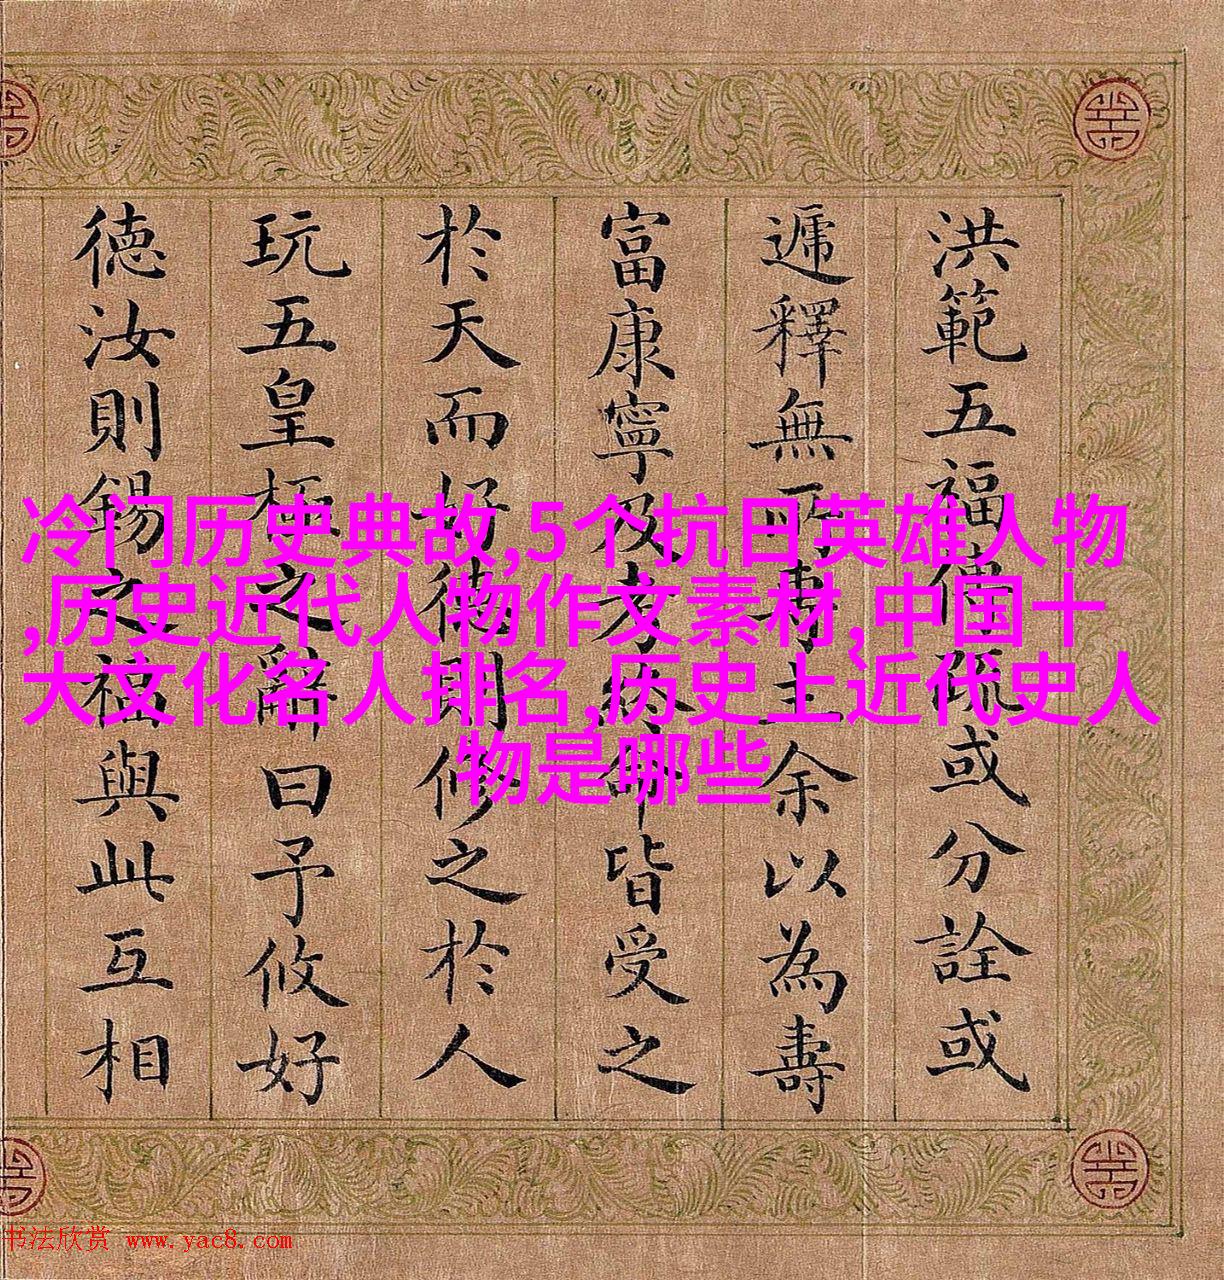 冷门历史典故,5个抗日英雄人物
,历史近代人物作文素材,中国十
大文化名人排名,历史上近代史人
物是哪些
洪範五福或分詮或
遞釋無所專主余以為壽
富康寧及考終命皆受之
於天而好德則修之於人
玩五皇極之辭曰予攸好
德汝則錫之福與此互相
书法欣赏 www.yac8.com